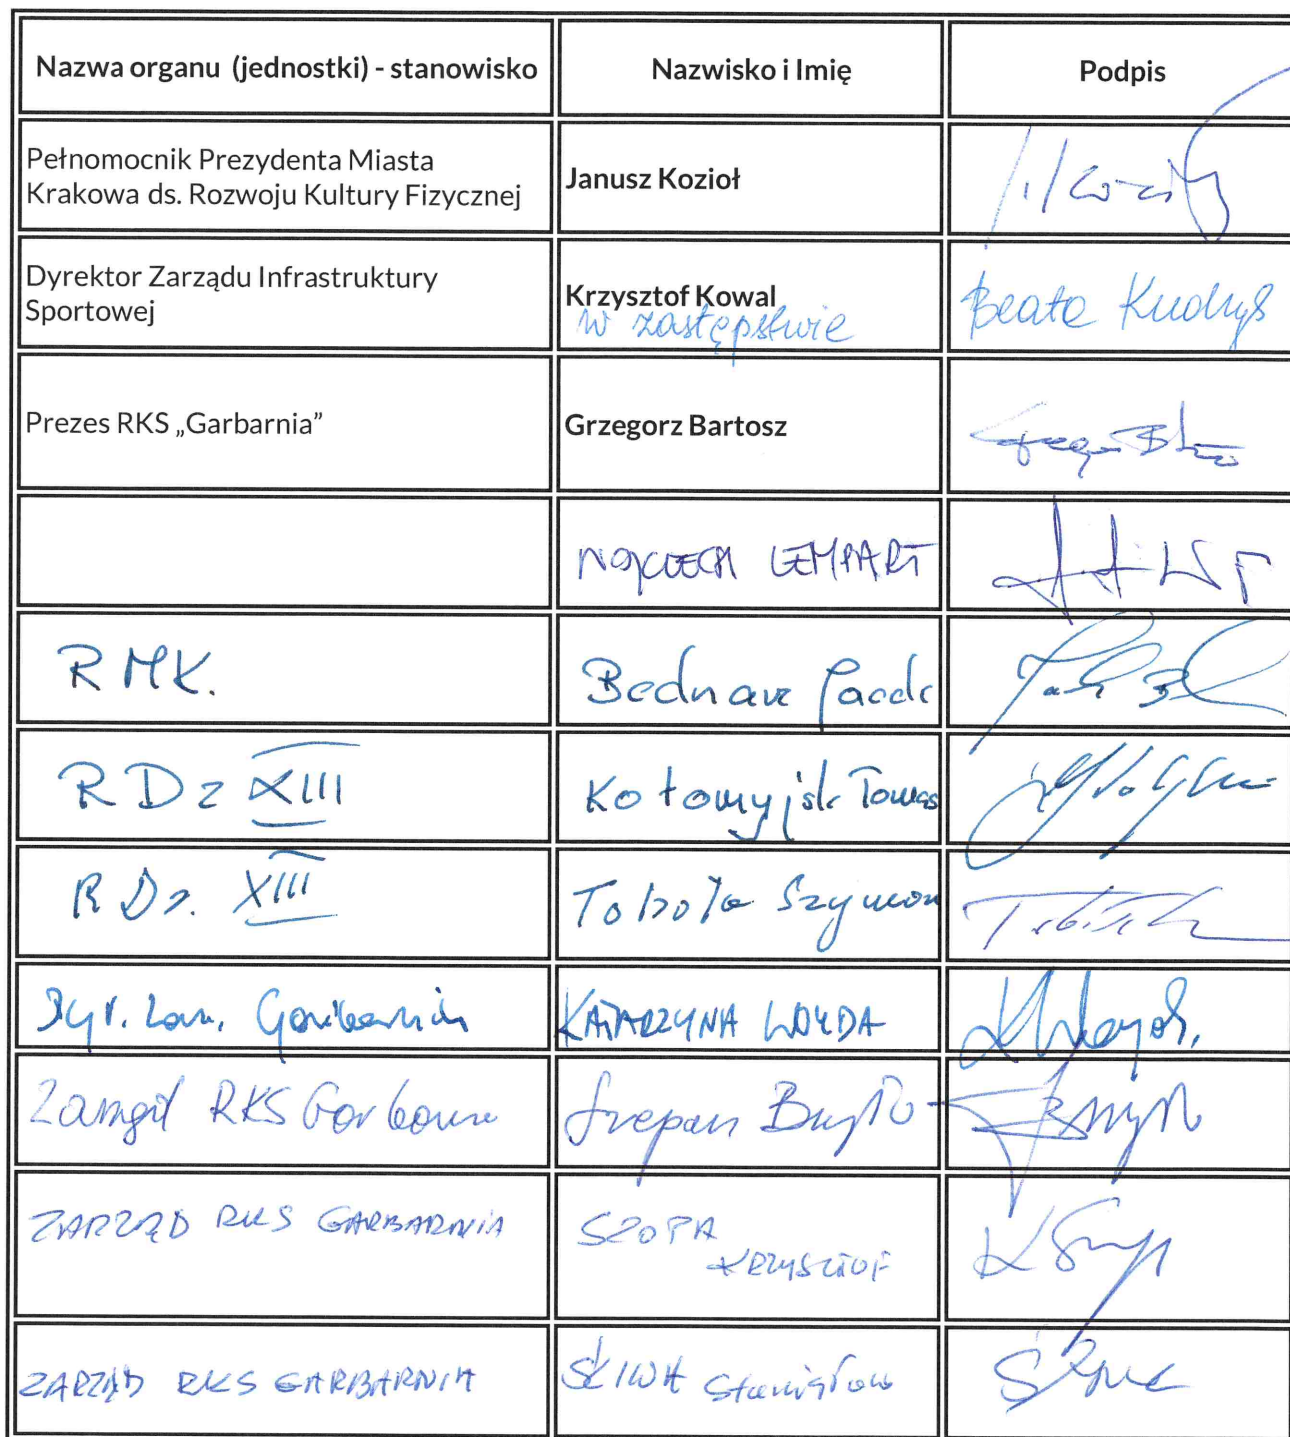 Nazwa organu (jednostki) - stanowisko Nazwisko i Imię Podpis
Pełnomocnik Prezydenta Miasta
Krakowa ds. Rozwoju Kultury Fizycznej
Janusz Kozioł
Dyrektor Zarządu Infrastruktury
Sportowej
Krzysztof Kowal
w zastępstwie
Beata Kudryś
Prezes RKS „Garbarnia”
Grzegorz Bartosz
WOJCIECH LEMPART
RMK.
Bednarz
RDz XIII
Kołomyjsk Tomas
RDz. XIII
Toboła Szymon
Dyr. Garbarnia
KATARZYNA WOYDA
Zarząd RKS Garbarnia
Szczepan Bryło
ZARZĄD RKS GARBARNIA
SZOPA
KRZYSZTOF
ZARZĄD RKS GARBARNIA
ŚLIWA Stanisław